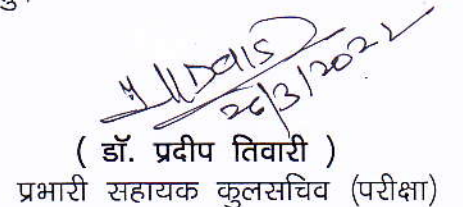 26/3/2022
( डॉ. प्रदीप तिवारी )
प्रभारी सहायक कुलसचिव (परीक्षा)